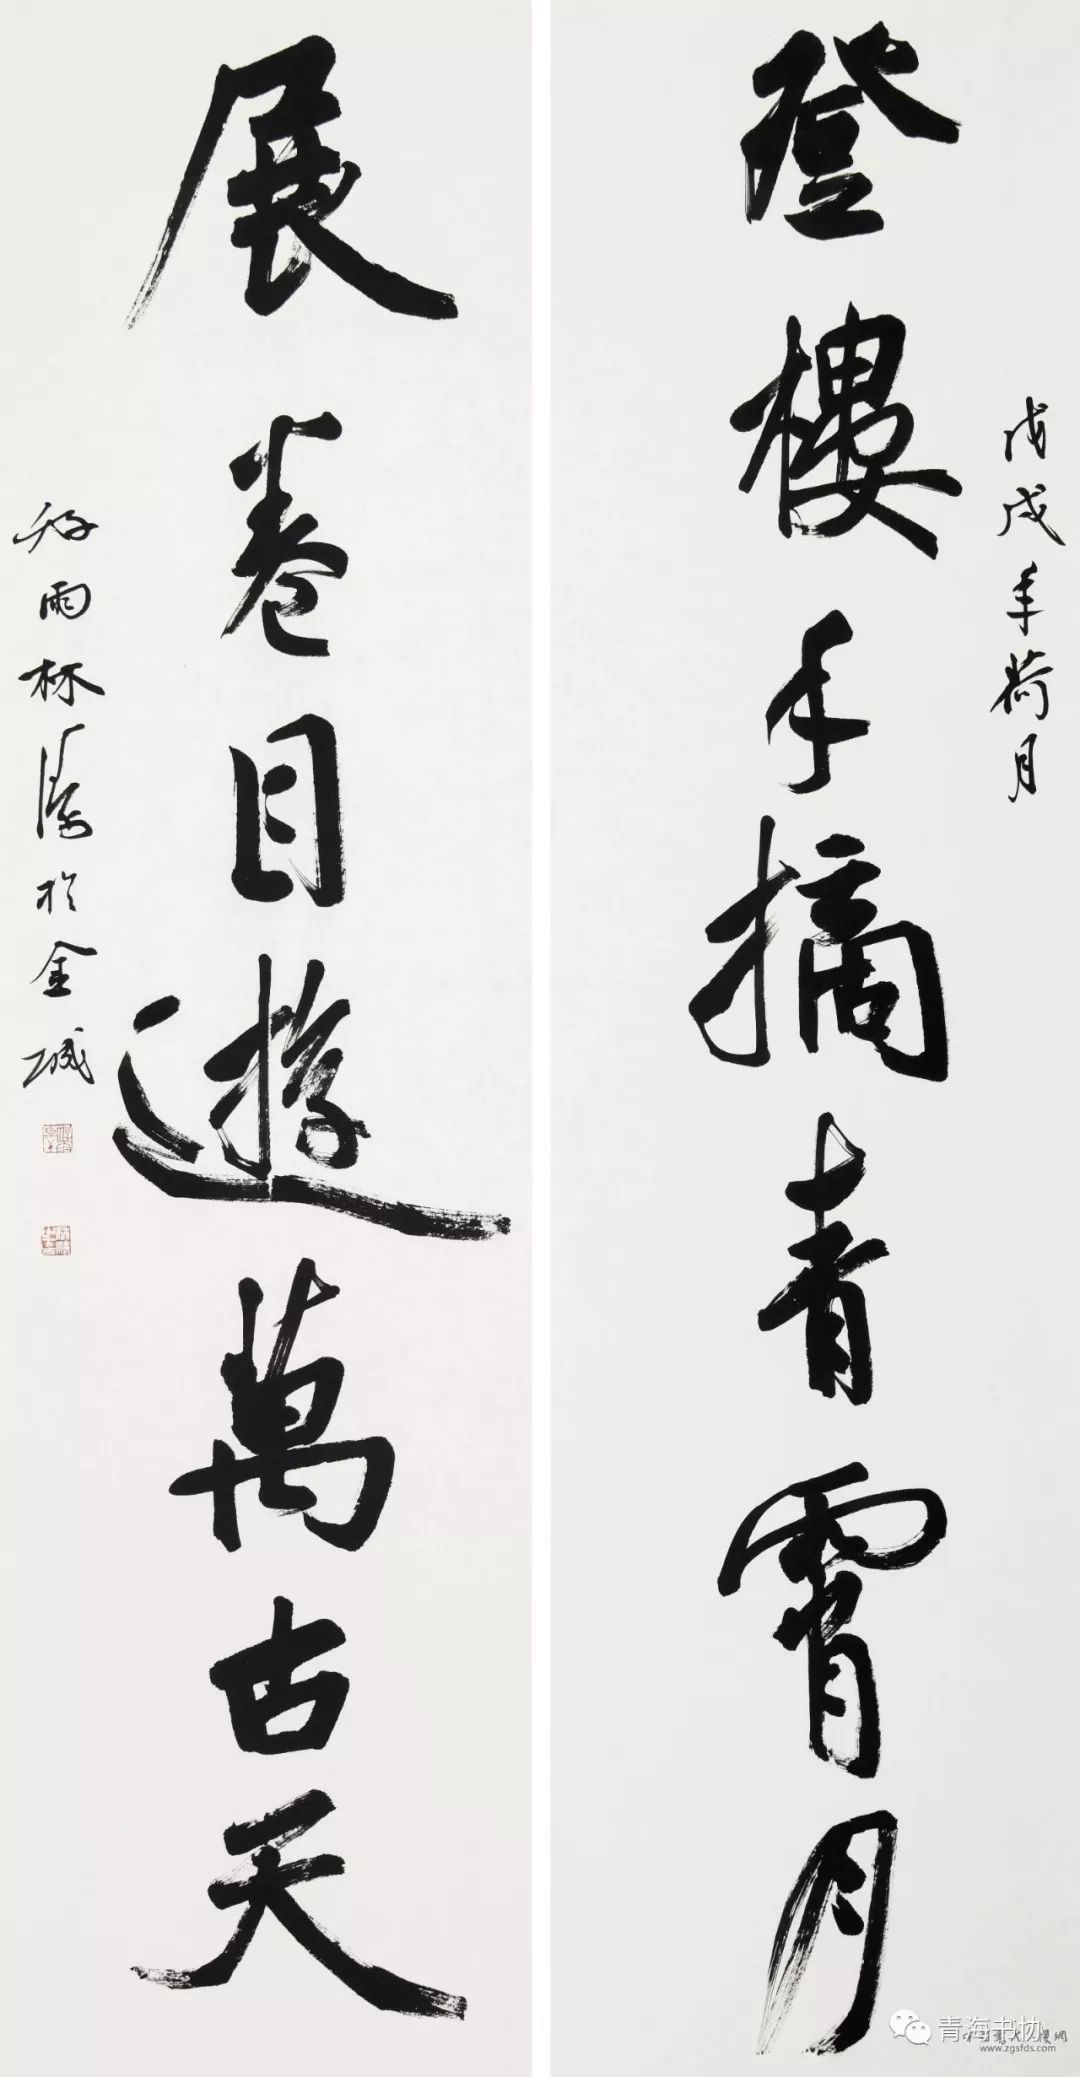 登樓手摘青霄月
戊戌年荷月
展卷目遊萬古天
於金城
青海书协
www.zgsfds.com